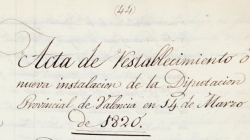 (44)
Acta de restablecimiento o
nueva instalacion de la Diputacion
Provincial de Valencia en 14 de Marzo
de 1820.